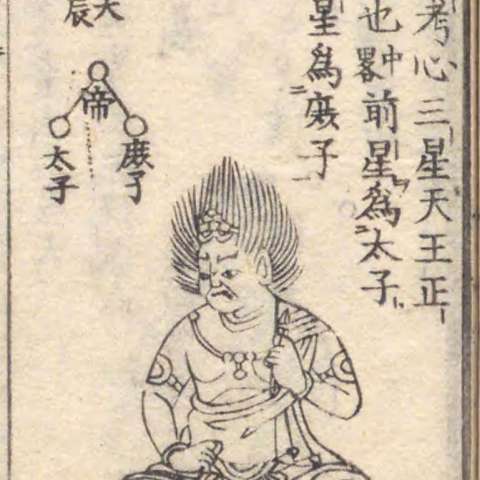 考心三星天王正
也中畧前星為太子
星爲庻子
天
辰
帝
太子
庻子